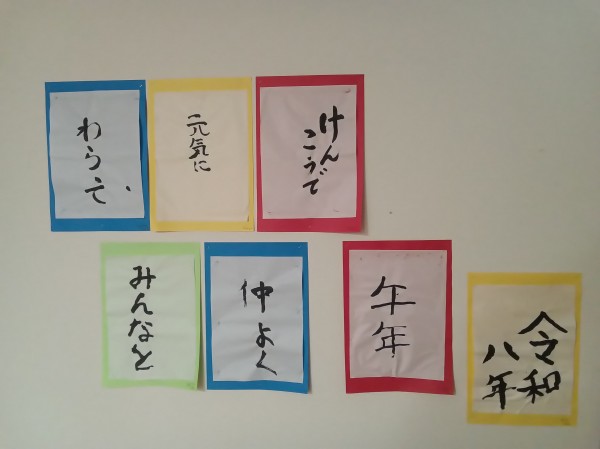 けん
こうで
元気に
令和
八年
午年
仲よく
みんなと